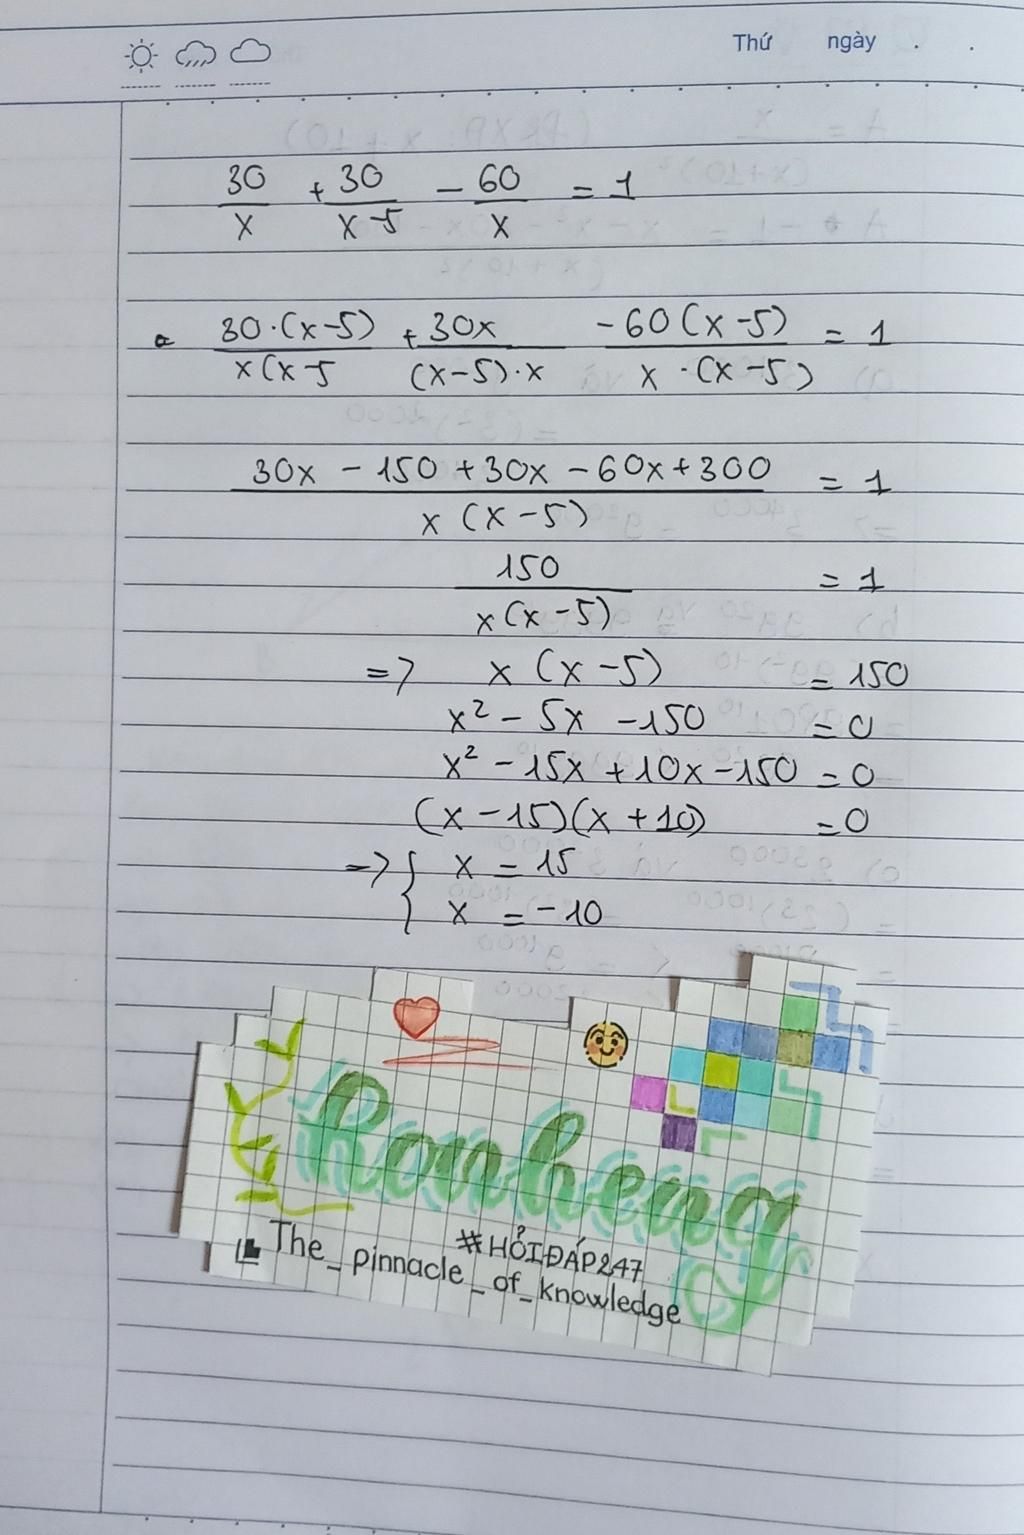 Thứ ngày . .
30/x + 30/x-5 - 60/x = 1
30·(x-5)/x(x-5 + 30x/(x-5)·x - 60(x-5)/x·(x-5) = 1
30x - 150 + 30x - 60x + 300/x(x-5) = 1
150/x(x-5) = 1
=> x(x-5) = 150
x² - 5x - 150 = 0
x² - 15x + 10x - 150 = 0
(x - 15)(x + 10) = 0
=> { x = 15
x = -10
#HỎIĐÁP247
The_pinnacle_of_knowledge